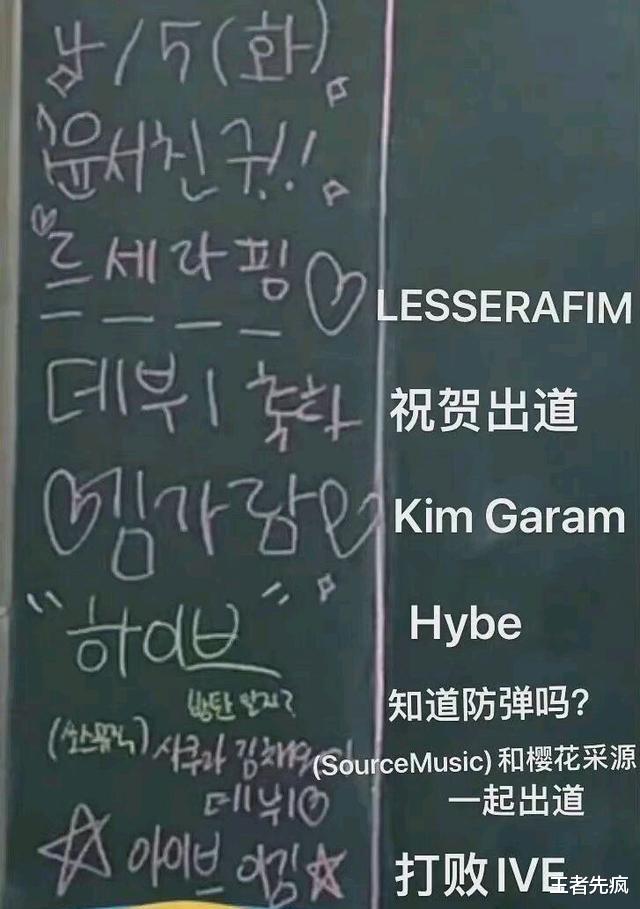 낮/5(화)
윤서친구!!
르세라핌♡ LESSERAFIM
데뷔 축하 祝贺出道
♡김가람♡ Kim Garam
"하이브" Hybe
방탄 알지? 知道防弹吗?
(쏘스뮤직) 사쿠라 김채원 (SourceMusic)和樱花采源
데뷔♡ 一起出道
☆아이브 이김★ 打败IVE
王者先疯